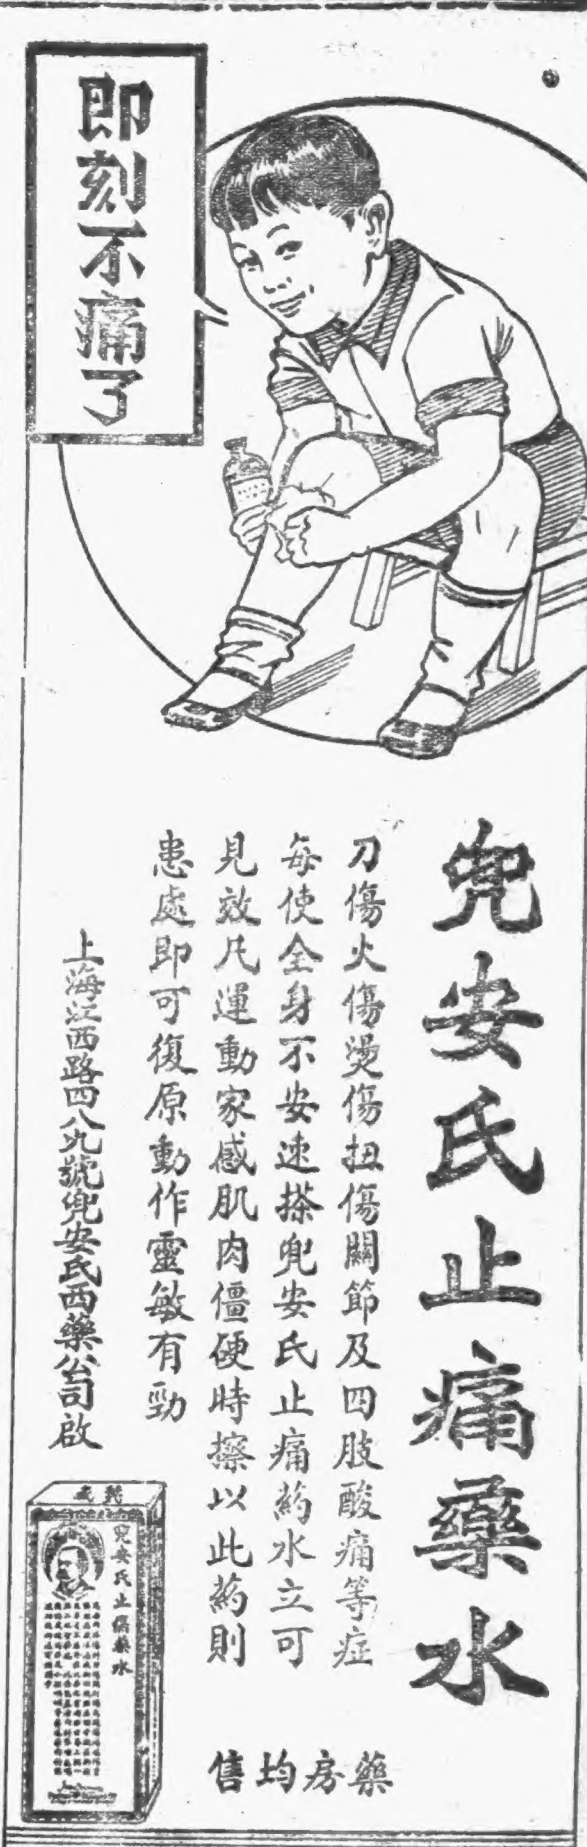 即刻不痛了
兜安氏止痛藥水
刀傷火傷燙傷扭傷關節及四肢酸痛等症
每使全身不安速搽兜安氏止痛葯水立可
見效凡運動家感肌肉僵硬時擦以此葯則
患處即可復原動作靈敏有勁
藥房均售
上海江西路四八九號兜安氏西藥公司啟
兜安氏止痛藥水